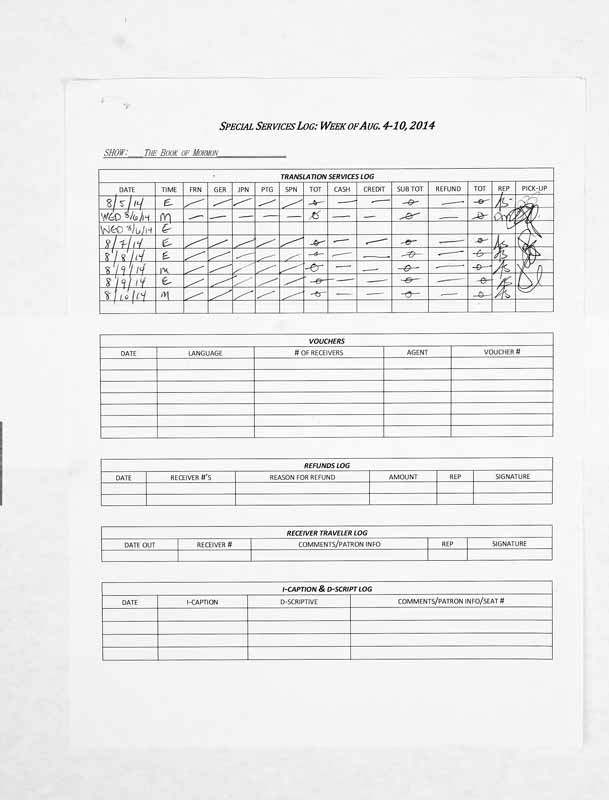 SPECIAL SERVICES LOG: WEEK OF AUG. 4-10, 2014
SHOW: THE BOOK OF MORMON
TRANSLATION SERVICES LOG
DATE TIME FRN GER JPN PTG SPN TOT CASH CREDIT SUB TOT REFUND TOT REP PICK-UP
8/5/14 E / / / / / 0 — — 0 — 0
WED 8/6/14 M — — — — — 0 — — 0 — 0
WED 8/6/14 E
8/7/14 E / / / / / 0 — — 0 — 0
8/8/14 E / / / / / 0 — — 0 — 0
8/9/14 M / / / / / 0 — — 0 — 0
8/9/14 E / / / / / 0 — — 0 — 0
8/10/14 M / / / / / 0 — — 0 — 0
VOUCHERS
DATE LANGUAGE # OF RECEIVERS AGENT VOUCHER #
REFUNDS LOG
DATE RECEIVER #'S REASON FOR REFUND AMOUNT REP SIGNATURE
RECEIVER TRAVELER LOG
DATE OUT RECEIVER # COMMENTS/PATRON INFO REP SIGNATURE
I-CAPTION & D-SCRIPT LOG
DATE I-CAPTION D-SCRIPTIVE COMMENTS/PATRON INFO/SEAT #